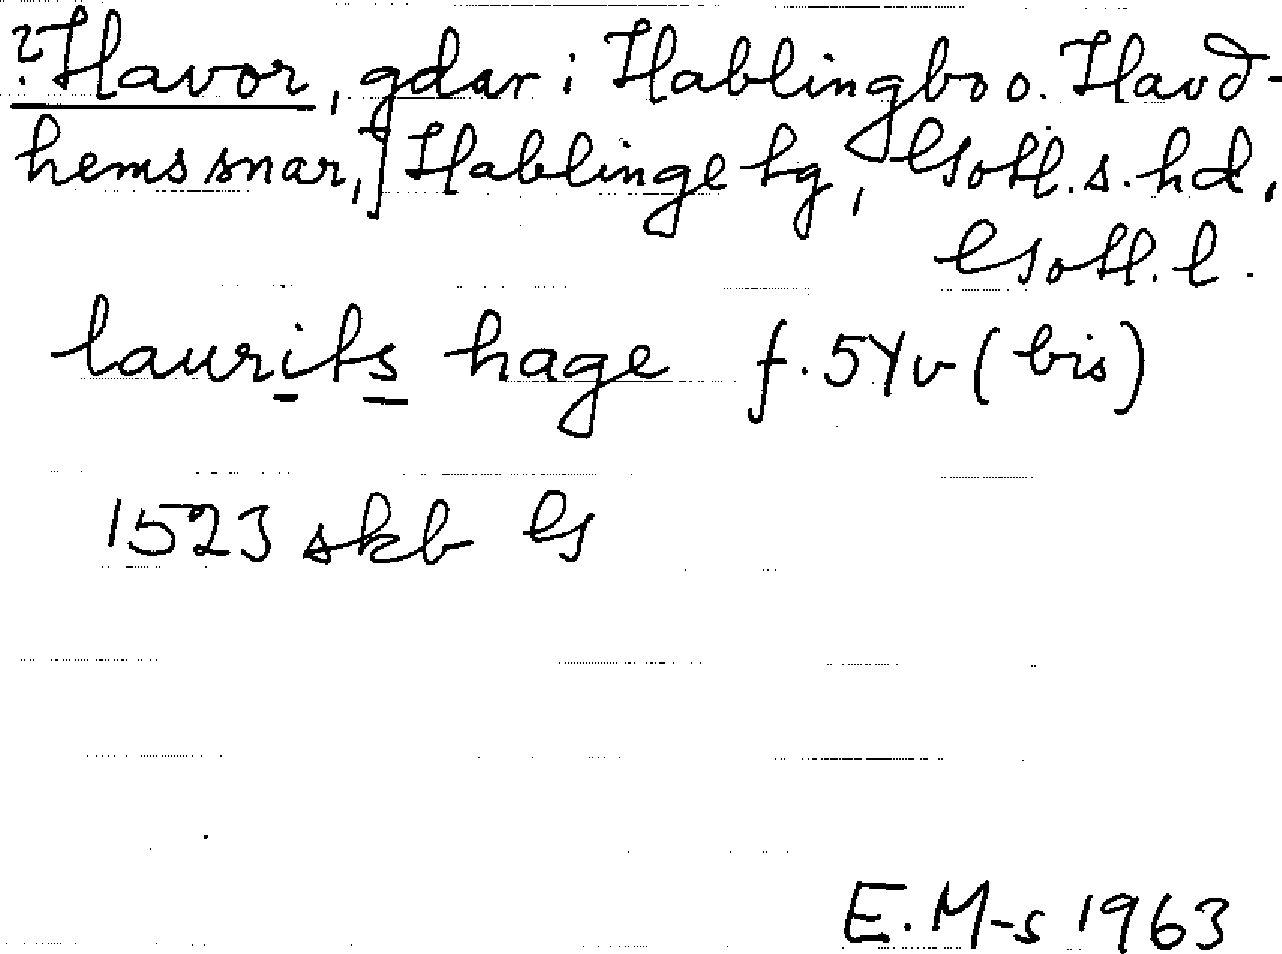 ?Havor, gdar i Hablingbo o. Havd-
hems snar,] Hablinge tg, Gotl. s. hd,
Gotl. l.
laurits hage f. 54v (bis)
1523 skb G
E. M-s 1963